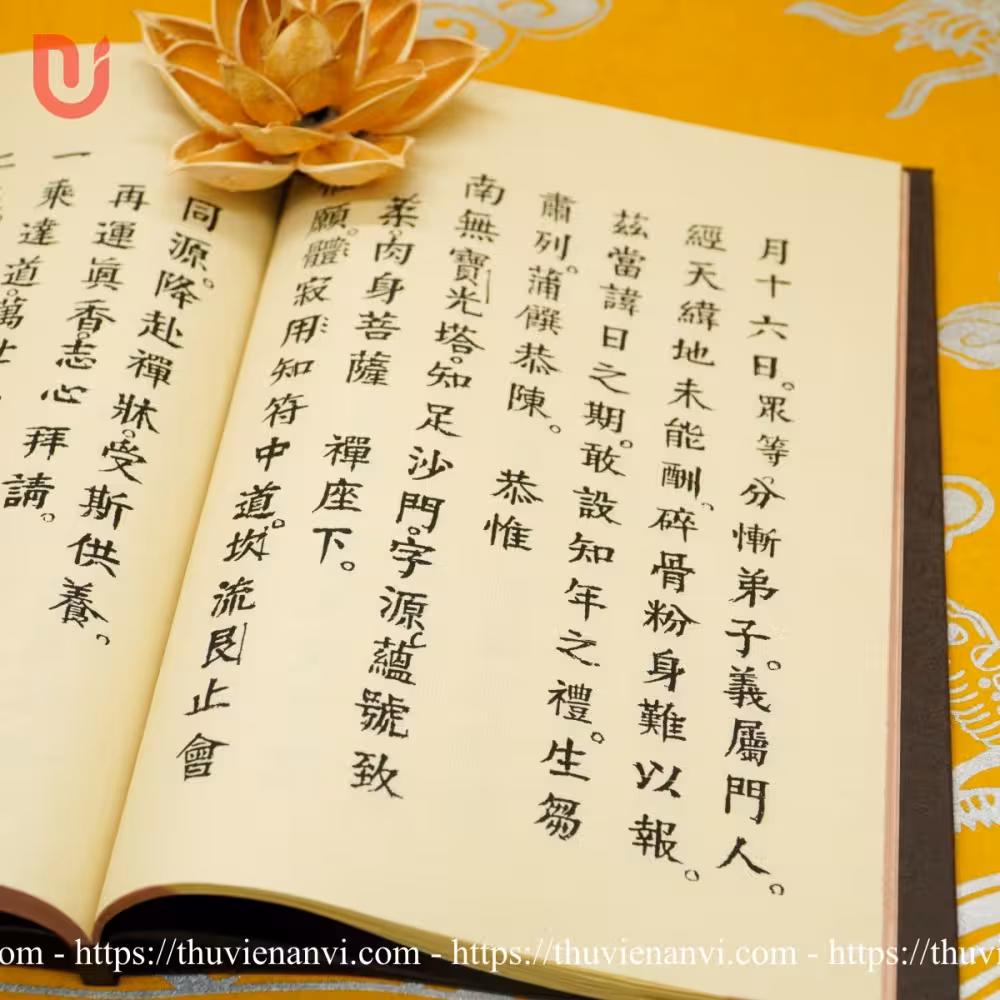 月十六日。眾等。分慚弟子。義屬門人。
經天緯地未能酬。碎骨粉身難以報。
茲當諱日之期。敢設知年之禮。生芻
肅列。蒲饌恭陳。 恭惟
南無寶光塔。知足沙門。字源蘊號致
柔。肉身菩薩 禪座下。
願。體寂用知符中道。坎流艮止會
同源。降赴禪牀。受斯供養。
再運眞香。志心 拜請。
一乘達道。萬
.com - https://thuvienanvi.com - https://thuvienanvi.com - https://thuvi